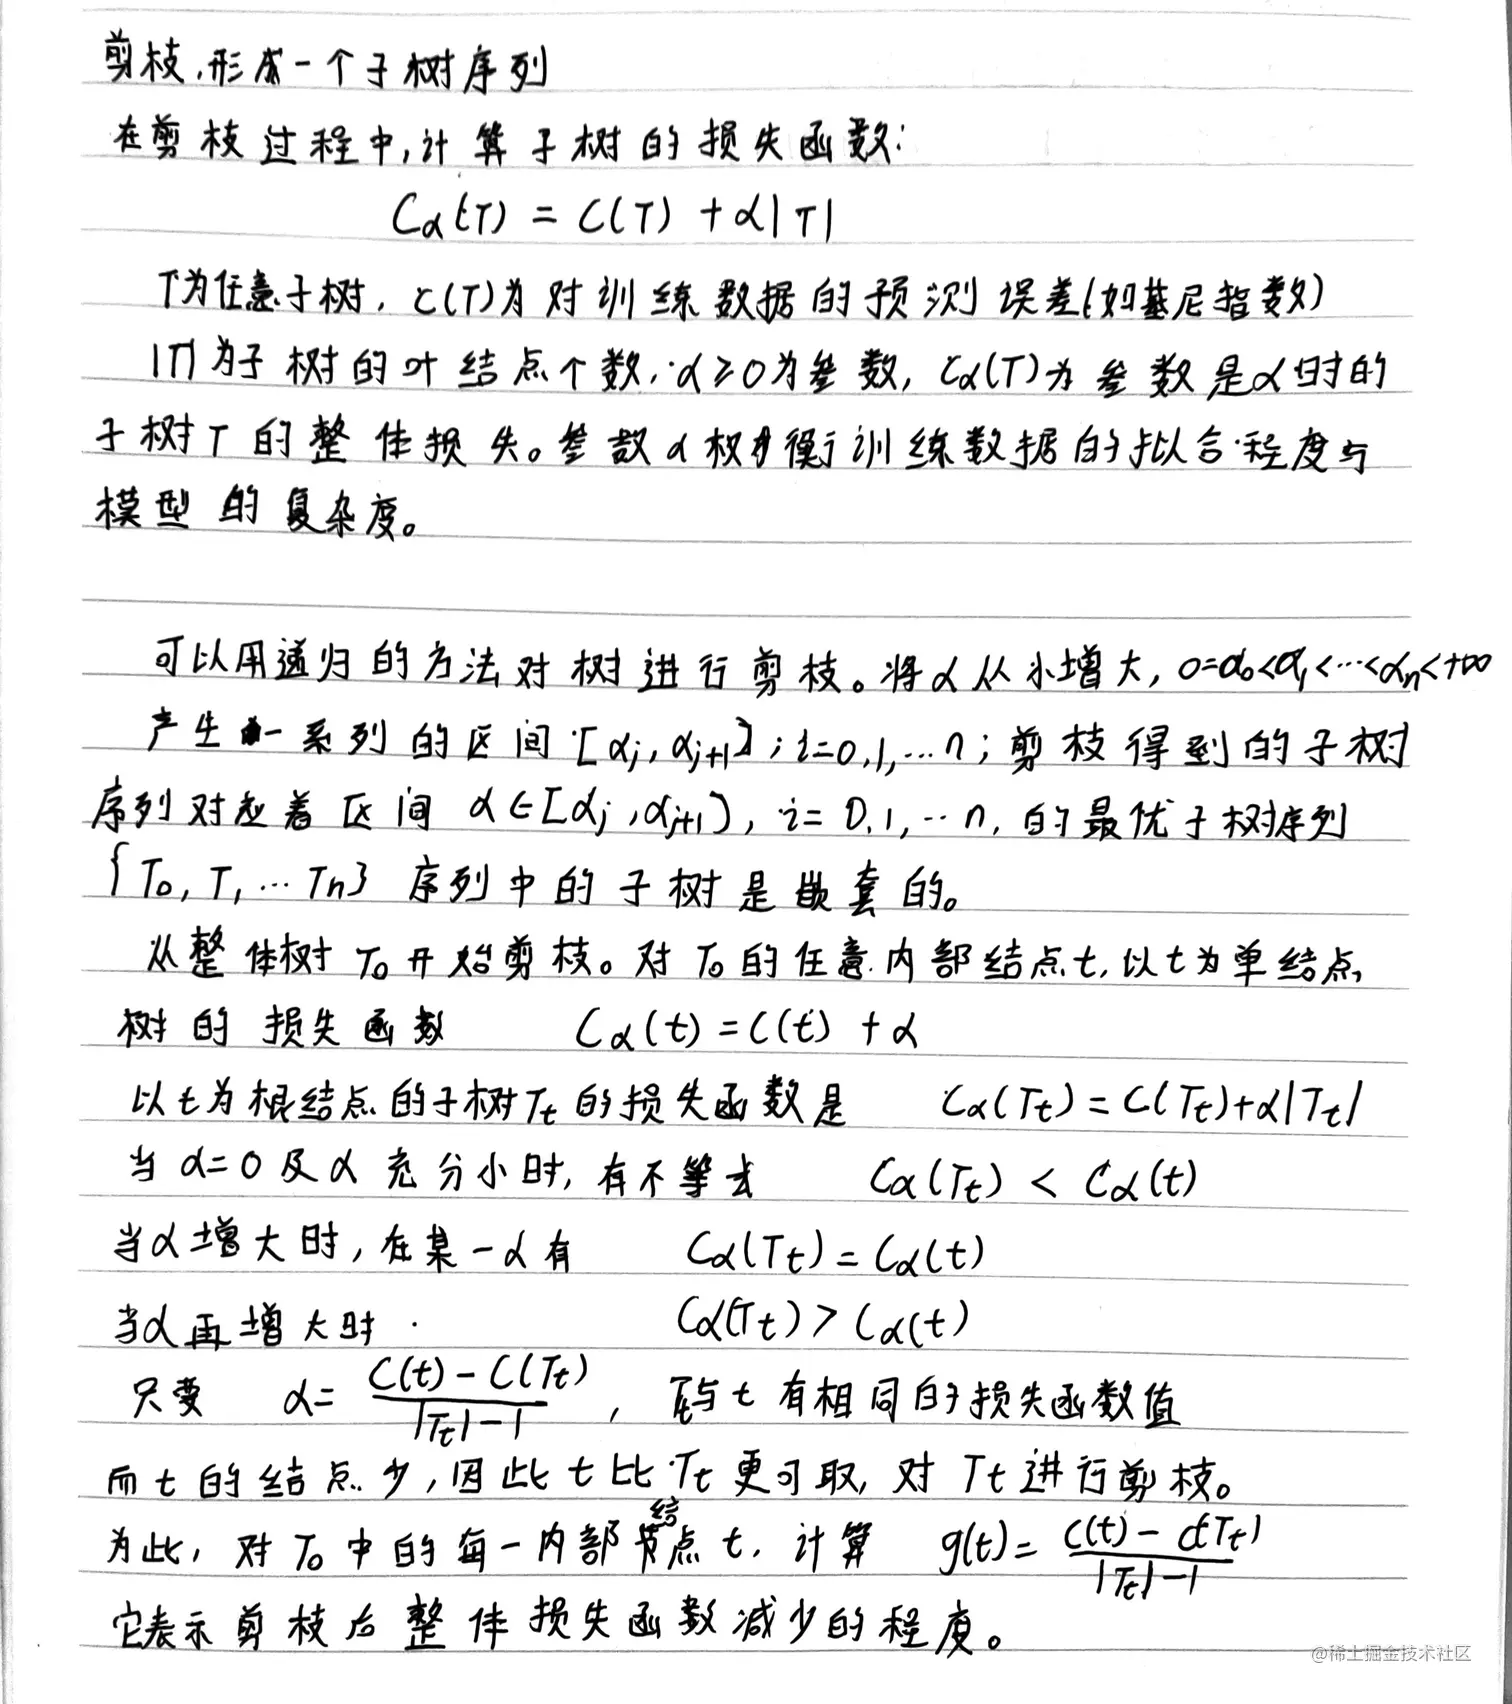 剪枝,形成一个子树序列
在剪枝过程中,计算子树的损失函数:
Cα(T) = C(T) + α|T|
T为任意子树, C(T)为对训练数据的预测误差(如基尼指数)
|T|为子树的叶结点个数, α≥0为参数, Cα(T)为参数是α时的
子树T的整体损失。参数α权衡训练数据的拟合程度与
模型的复杂度。
可以用递归的方法对树进行剪枝。将α从小增大, 0=α₀<α₁<…<αn<+∞
产生一系列的区间[αj, αj+1); i=0,1,…n; 剪枝得到的子树
序列对应着区间 α∈[αj, αj+1), i=0,1,…n, 的最优子树序列
{T₀, T₁ … Tn} 序列中的子树是嵌套的。
从整体树T₀开始剪枝。对T₀的任意内部结点t, 以t为单结点
树的损失函数 Cα(t) = C(t) + α
以t为根结点的子树Tt的损失函数是 Cα(Tt) = C(Tt)+α|Tt|
当α=0及α充分小时, 有不等式 Cα(Tt) < Cα(t)
当α增大时, 在某一α有 Cα(Tt) = Cα(t)
当α再增大时 Cα(Tt) > Cα(t)
只要 α = (C(t) - C(Tt)) / (|Tt| - 1) , Tt与t有相同的损失函数值
而t的结点少, 因此t比Tt更可取, 对Tt进行剪枝。
为此, 对T₀中的每一内部结点t, 计算 g(t) = (C(t) - C(Tt)) / (|Tt| - 1)
它表示剪枝后整体损失函数减少的程度。
@稀土掘金技术社区